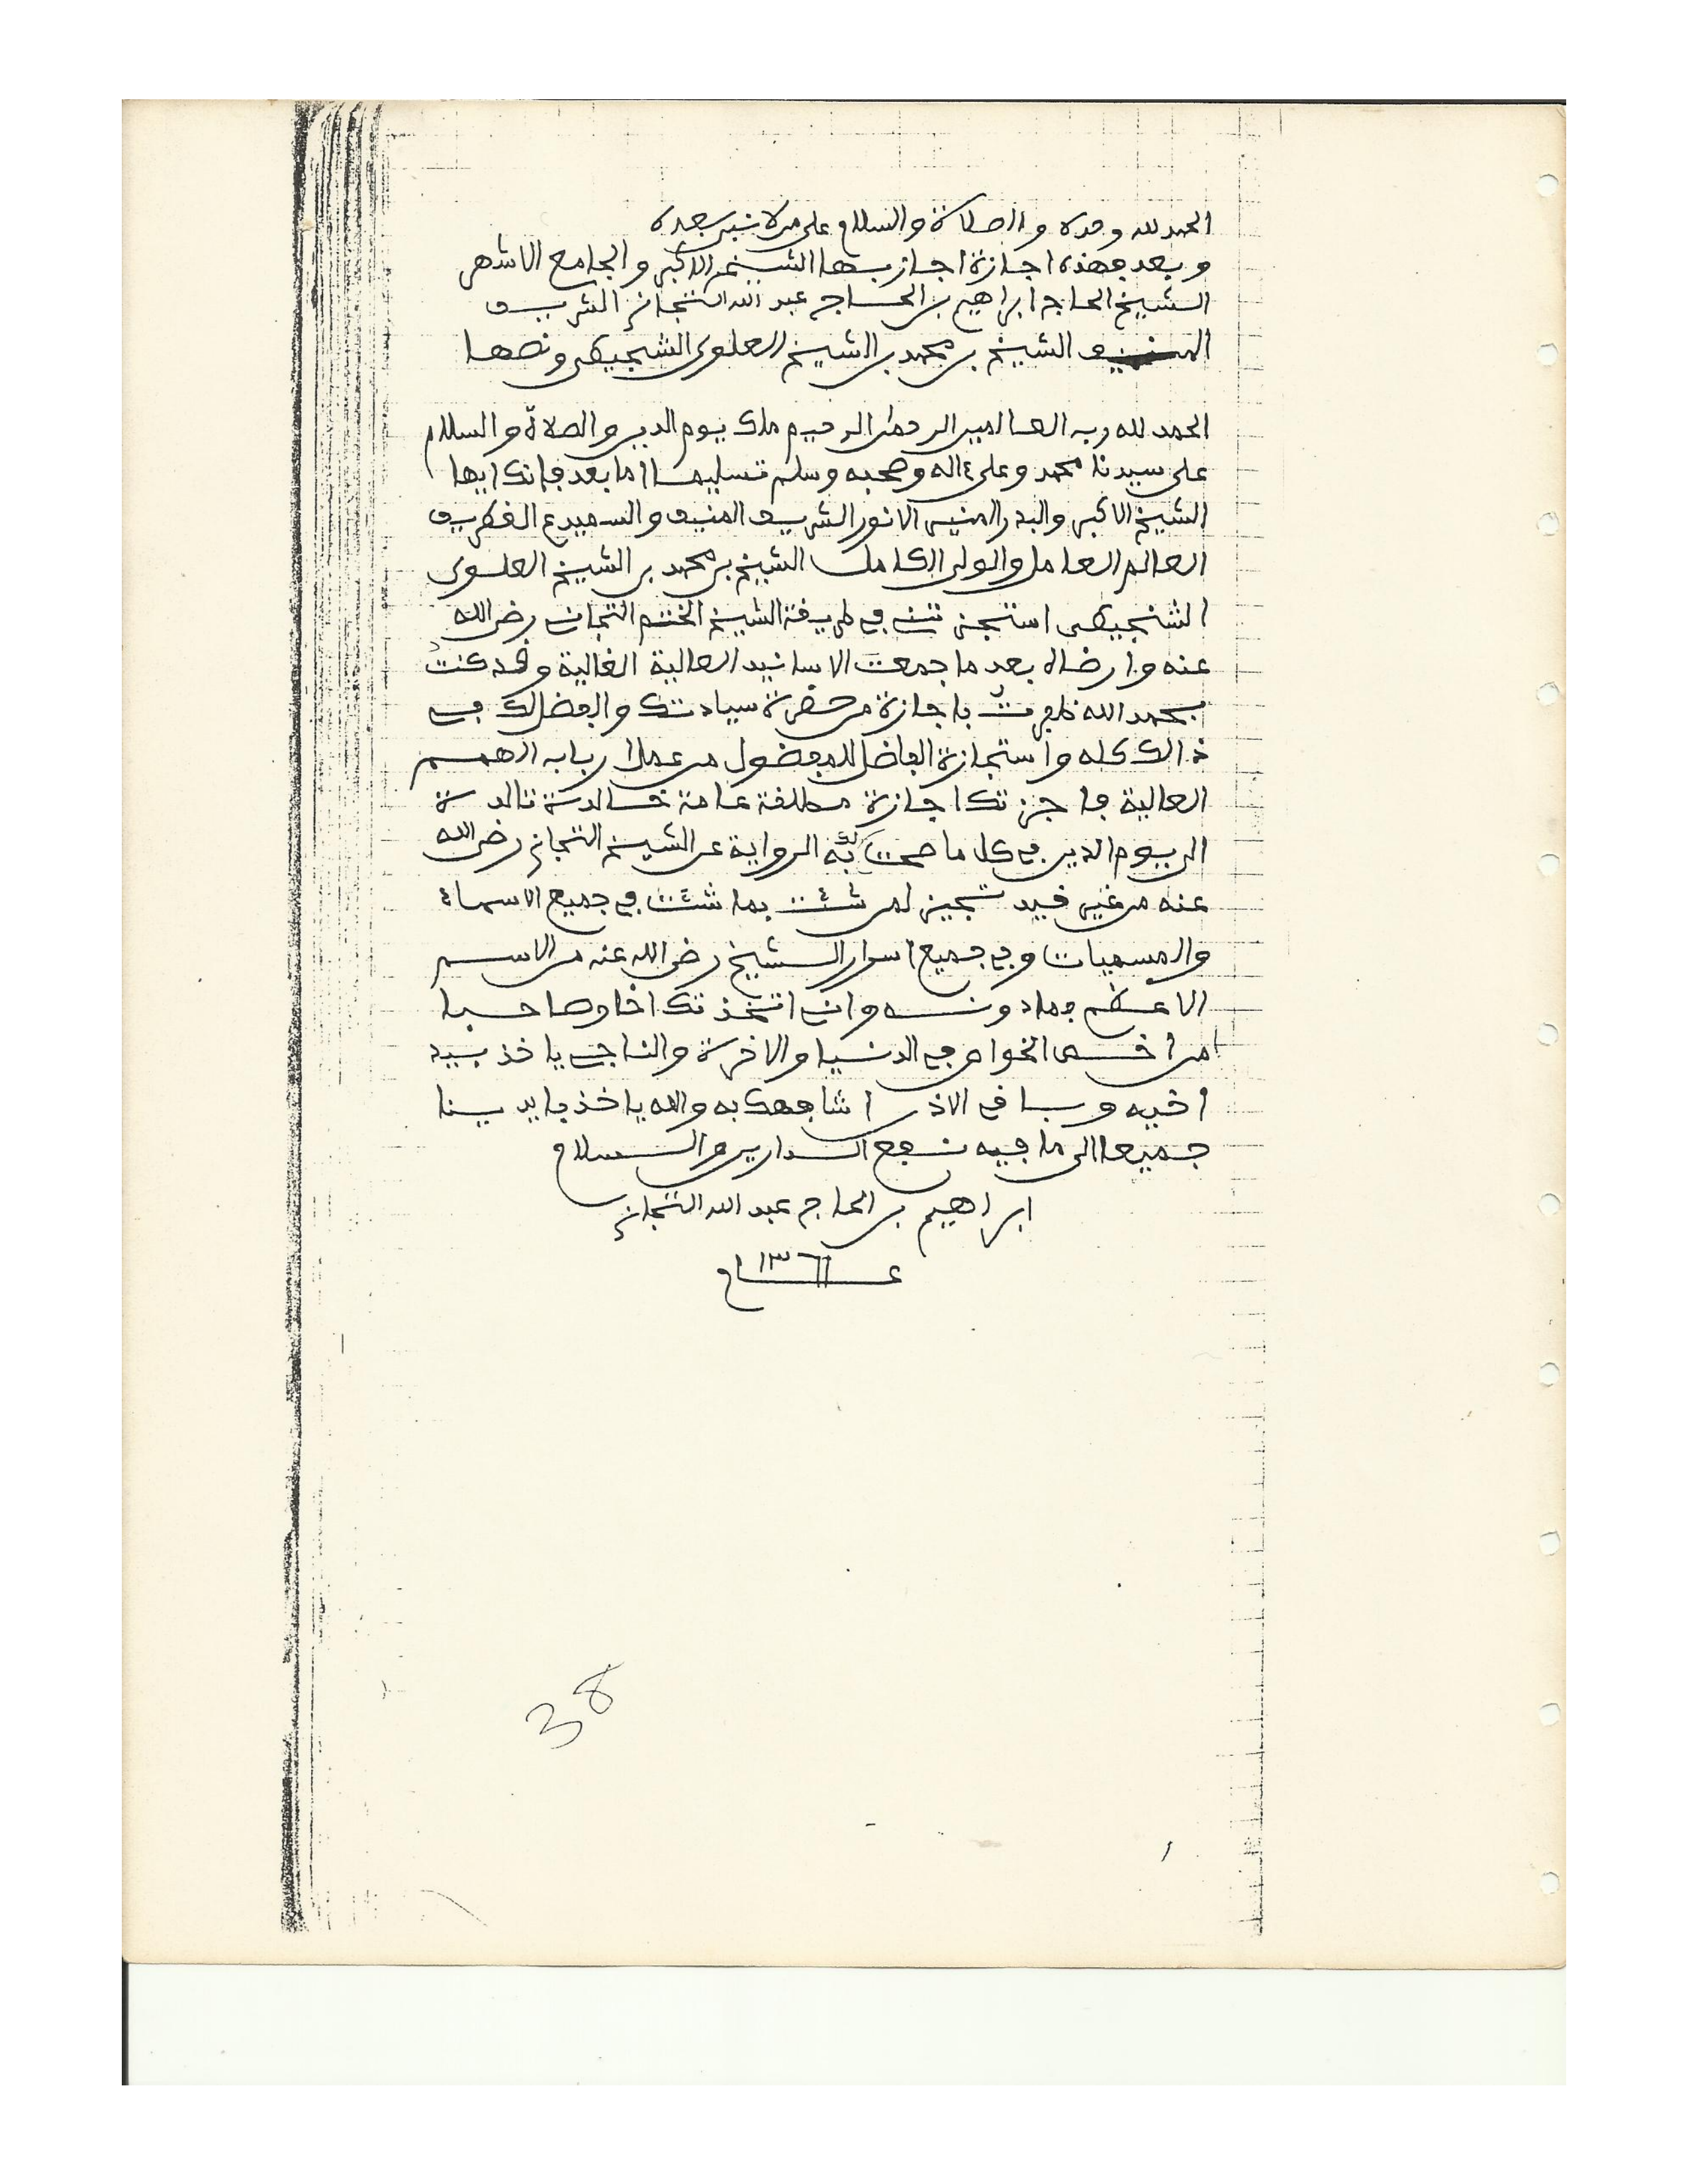 الحمد لله وحده والصلاة والسلام على من لا نبي بعده
وبعد فهذه اجازة اجاز بها الشيخ الاكبر والجامع الاشهر
الشيخ الحاج ابراهيم بن الحاج عبد الله التجاني الشريف
المنيف الشيخ بن محمد بن الشيخ العلوي الشنجيطي ونصها
الحمد لله رب العالمين الرحمن الرحيم ملك يوم الدين والصلاة والسلام
على سيدنا محمد وعلى ءاله وصحبه وسلم تسليما اما بعد فانك ايها
الشيخ الاكبر والبدر المنير الانور الشريف المنيف والسميدع الغطريف
العالم العامل والولي الكامل الشيخ بن محمد بن الشيخ العلوي
الشنجيطي استجزتني في طريقة الشيخ الختم التجاني رضي الله
عنه وارضاه بعد ما جمعت الاسانيد العالية الغالية وقد كنت
بحمد الله ظفرت باجازة من حضرة سيادتك والفضل لك في
ذالك كله واستجازة الفاضل للمفضول من عمل ارباب الهمم
العالية فاجزتك اجازة مطلقة عامة خالدة تالدة
الى يوم الدين في كل ما صحت لي به الرواية عن الشيخ التجاني رضي الله
عنه من غير قيد تجيز لمن شئت بما شئت في جميع الاسماء
والمسميات وفي جميع اسرار الشيخ رضي الله عنه من الاسم
الاعظم فما دونه وانى اتخذتك اخا وصاحبا
من اخص الخواص في الدنيا والاخرة والناجي ياخذ بيد
اخيه وباقي الاذن اشافهك به والله ياخذ بايدينا
جميعا الى ما فيه نفع الدارين والسلام
ابراهيم بن الحاج عبد الله التجاني
عام ١٣٦١
38